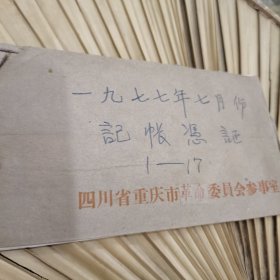 一九七七年七月份
記帳憑証
1—17
四川省重庆市革命委員会参事室